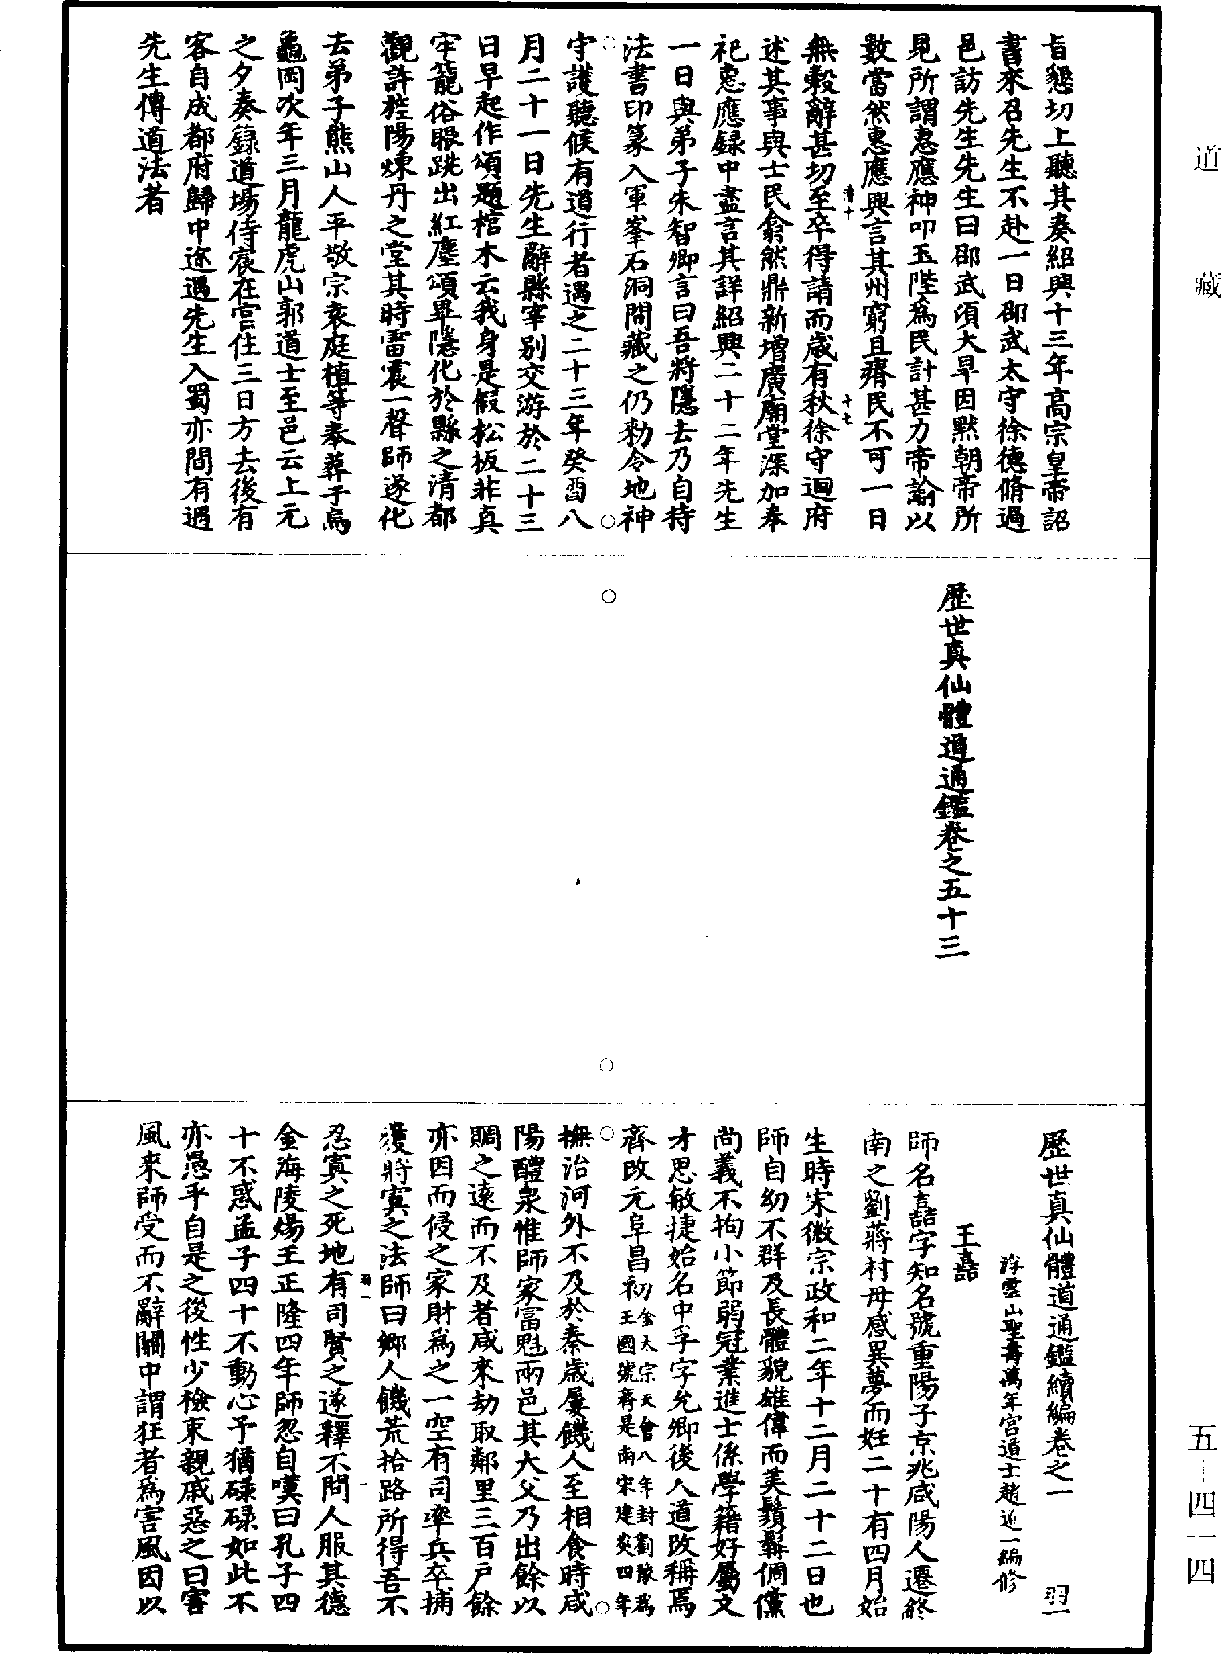 道藏
旨懇切上聽其奏紹興十三年高宗皇帝詔
書來召先生不赴一日邵武太守徐德脩過
邑訪先生先生曰邵武須大旱因默朝帝所
見所謂惠應神叩玉陛為民計甚力帝諭以
數當然惠應興言其州窮且瘠民不可一日
無穀辭甚切至卒得請而歲有秋徐守迴府
述其事與士民翕然鼎新增廣廟堂深加奉
祀惠應録中盡言其詳紹興二十二年先生
一日與弟子朱智卿言曰吾將隱去乃自持
法書印篆入軍峯石洞間藏之仍勑令地神
守護聽候有道行者遇之二十三年癸酉八
月二十一日先生辭縣宰別交游於二十三
日早起作頌題棺木云我身是假松板非真
牢籠俗眼跳出紅塵頌畢隱化於縣之清都
觀許旌陽煉丹之堂其時雷震一聲師遂化
去弟子熊山人平敬宗袁庭植等奉葬于烏
龜岡次年三月龍虎山郭道士至邑云上元
之夕奏録道場侍宸在宫住三日方去後有
客自成都府歸中途遇先生入蜀亦間有遇
先生傳道法者
歷世真仙體道通鑑卷之五十三
歷世真仙體道通鑑續編卷之一 羽一
浮雲山聖壽萬年宫道士趙道一編修
王嚞
師名嚞字知名號重陽子京兆咸陽人遷終
南之劉蔣村母感異夢而妊二十有四月始
生時宋徽宗政和二年十二月二十二日也
師自幼不群及長體貌雄偉而美鬚髯倜儻
尚義不拘小節弱冠業進士係學籍好屬文
才思敏捷始名中孚字允卿後入道改稱焉
齊改元阜昌初金太宗天會八年封劉豫為王國號齊是南宋建炎四年
撫治河外不及於秦歲屢饑人至相食時咸
陽醴泉惟師家富魁兩邑其大父乃出餘以
賙之遠而不及者咸來劫取鄰里三百戶餘
亦因而侵之家財為之一空有司率兵卒捕
獲將寘之法師曰鄉人饑荒拾路所得吾不
忍寘之死地有司賢之遂釋不問人服其德
金海陵煬王正隆四年師忽自嘆曰孔子四
十不惑孟子四十不動心予猶碌碌如此不
亦愚乎自是之後性少檢束親戚惡之曰害
風來師受而不辭關中謂狂者為害風因以
五—四一四